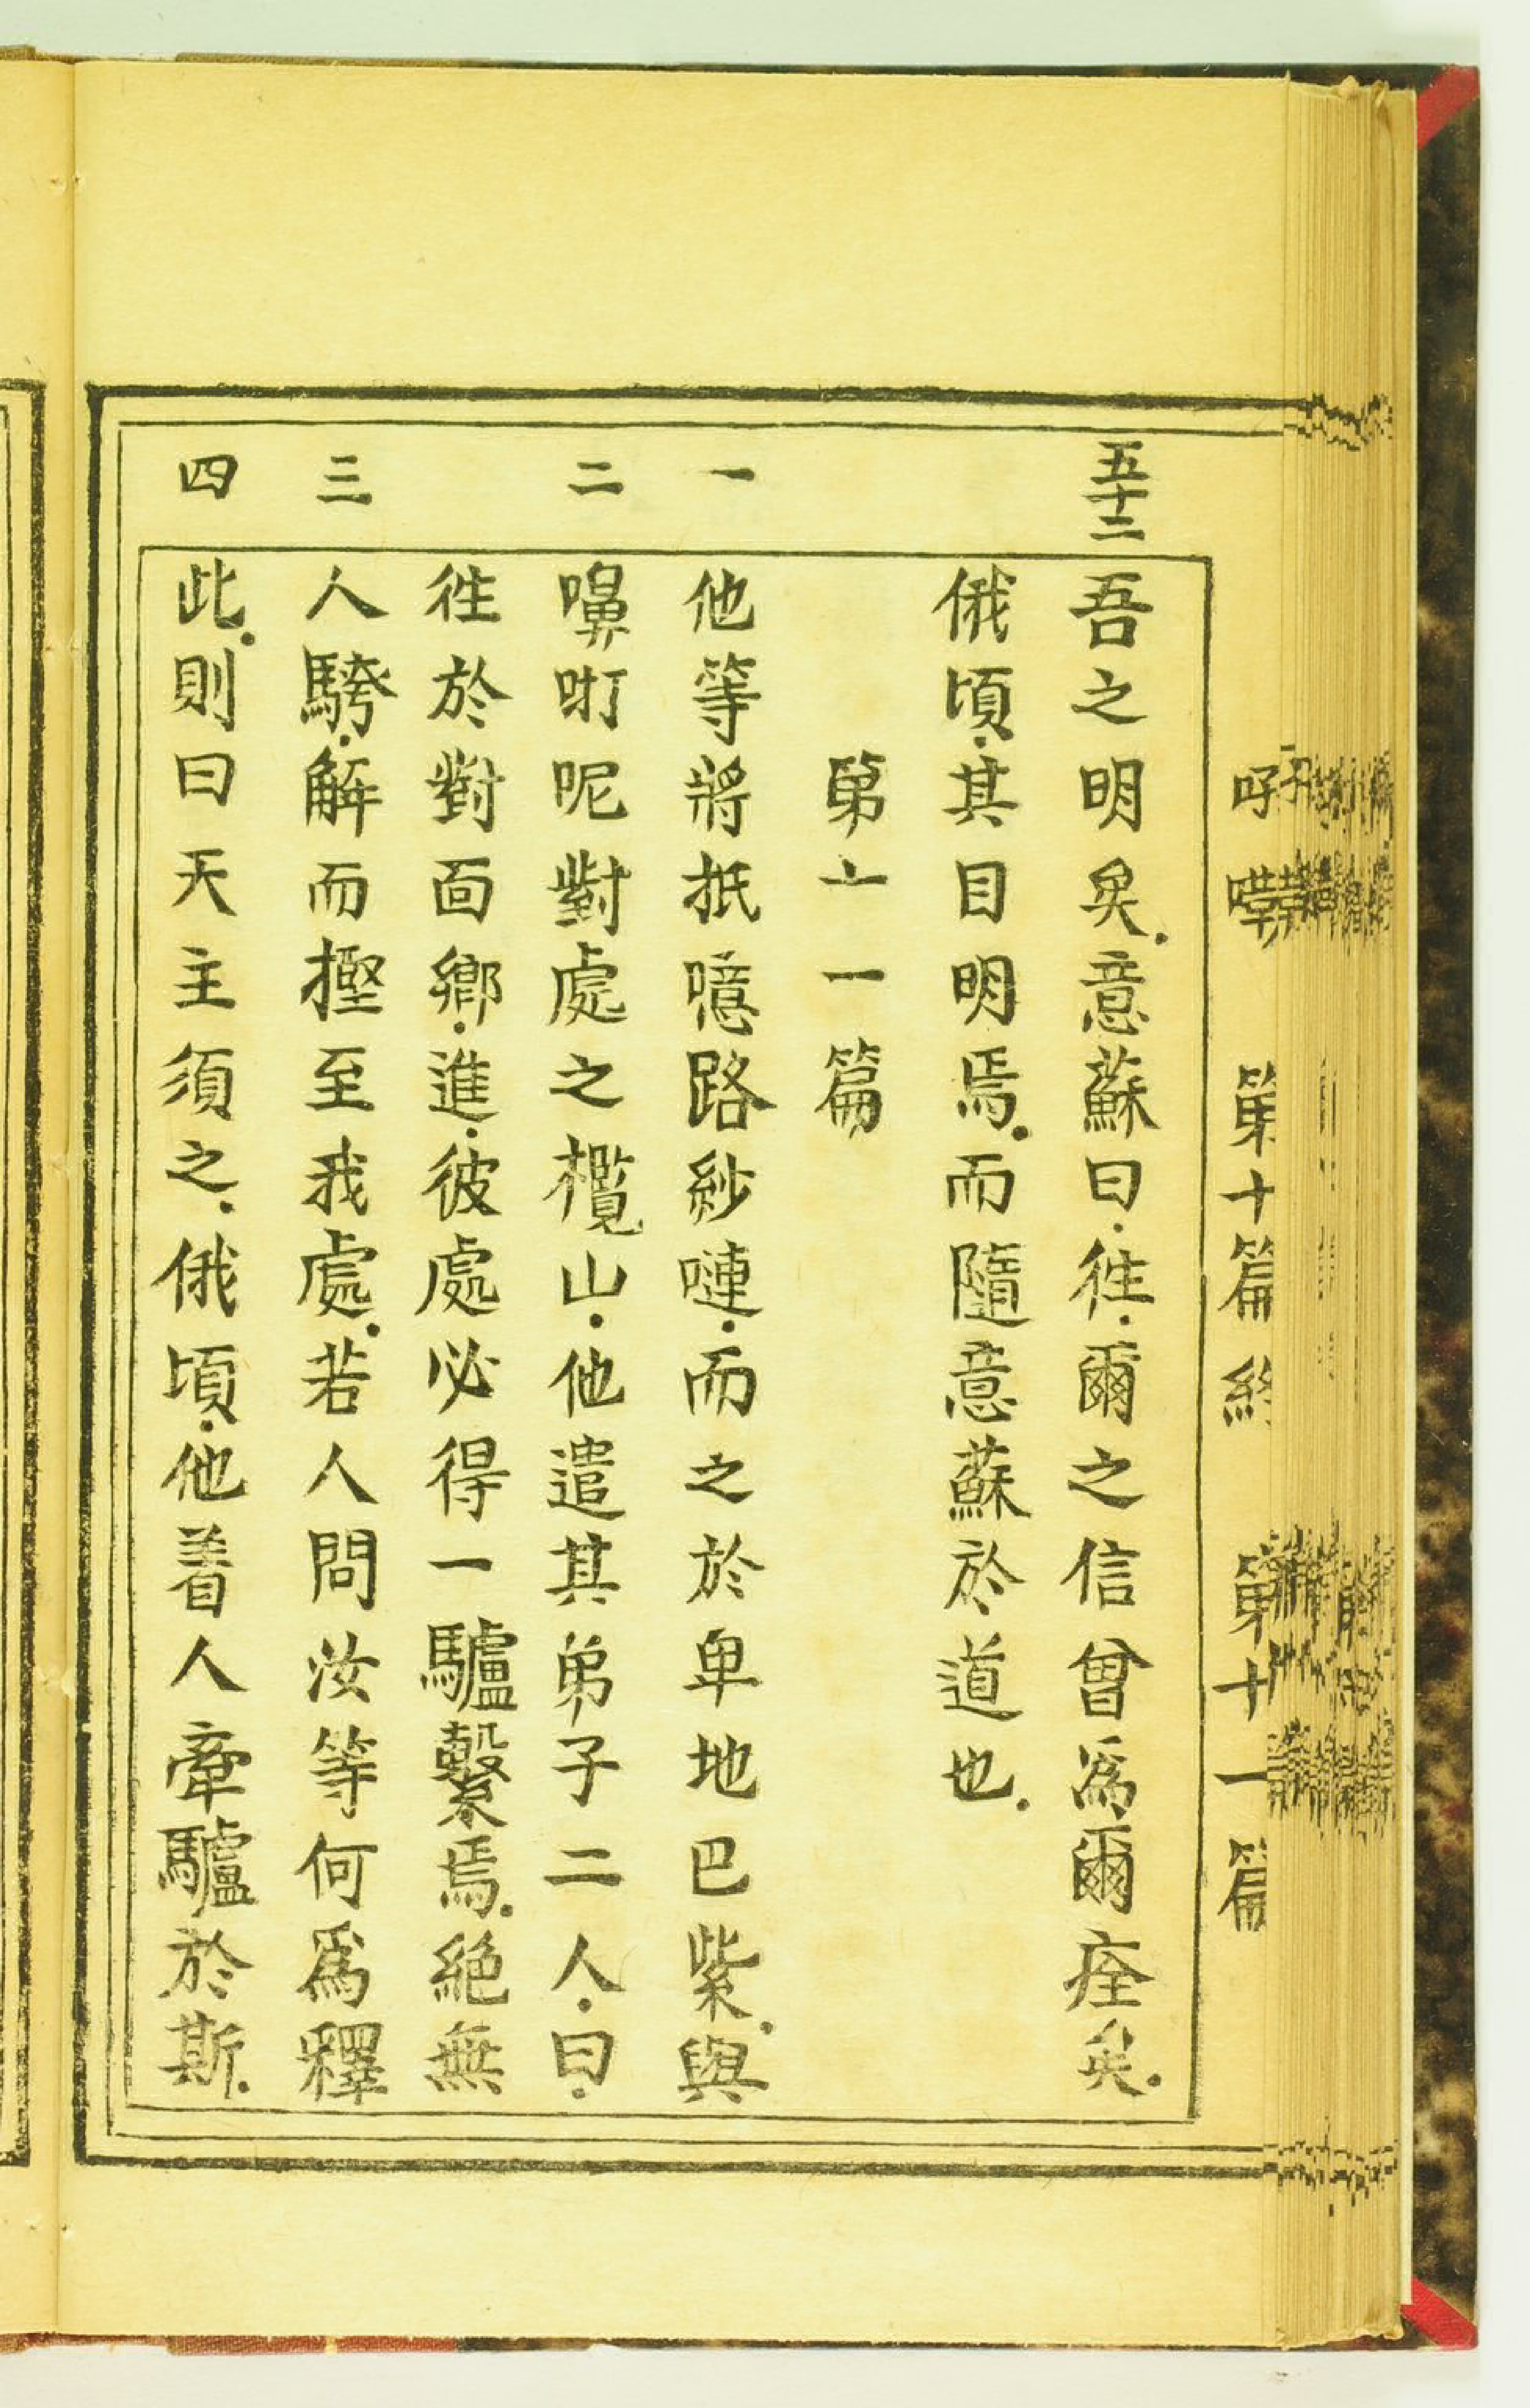 第十篇終 第十一篇
五十二 吾之明矣.意蘇曰.徃.爾之信曾爲爾痊矣.
俄頃.其目明焉.而隨意蘇於道也.
第十一篇
一 他等將抵噫路紗嗹.而之於卑地巴紫.與
二 嘷咑呢對處之欖山.他遣其弟子二人.曰.
徃於對面鄉.進.彼處必得一驢繫焉.絕無
三 人騎.解而摼至我處.若人問汝等何爲釋
四 此.則曰天主須之.俄頃.他着人牽驢於斯.